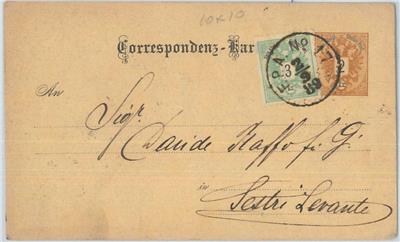 10x10
Correspondenz-Kar
F.P.A. No 17
2/9
89
3
2
An
Sigr.
Davide Raffo fu G.
in
Sestri Levante